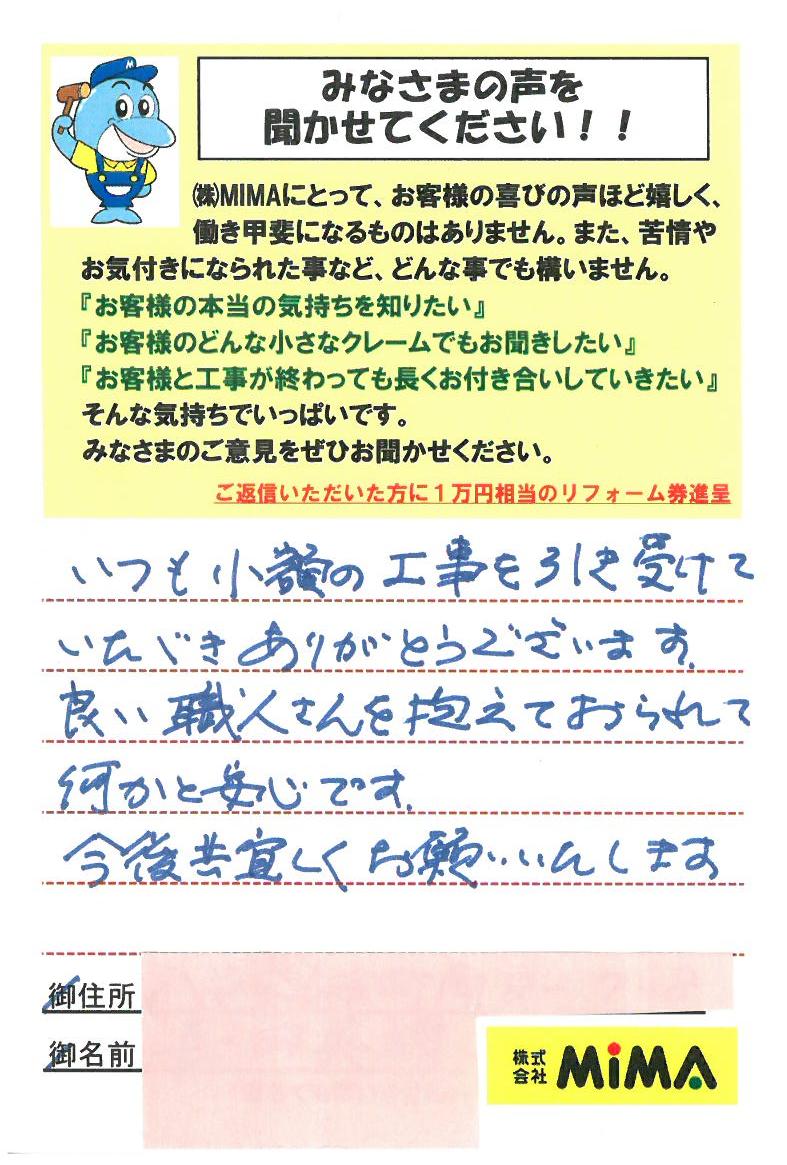 M
みなさまの声を
聞かせてください！！
㈱MIMAにとって、お客様の喜びの声ほど嬉しく、
働き甲斐になるものはありません。また、苦情や
お気付きになられた事など、どんな事でも構いません。
『お客様の本当の気持ちを知りたい』
『お客様のどんな小さなクレームでもお聞きしたい』
『お客様と工事が終わっても長くお付き合いしていきたい』
そんな気持ちでいっぱいです。
みなさまのご意見をぜひお聞かせください。
ご返信いただいた方に１万円相当のリフォーム券進呈
いつも小額の工事を引き受けて
いただきありがとうございます。
良い職人さんを抱えておられて
何かと安心です。
今後共宜しくお願いいたします
御住所
御名前
株式
会社 MiMA